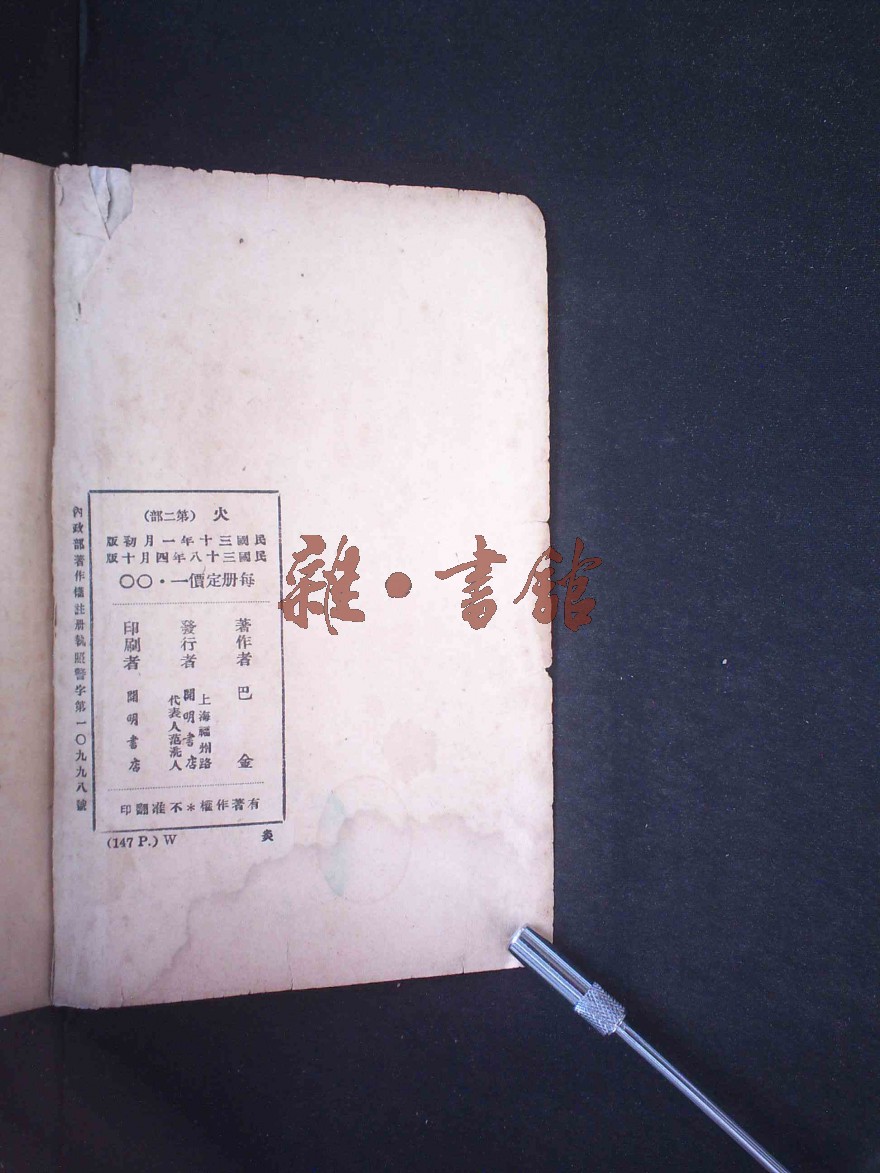 火 (第二部)
民國三十年一月初版
民國三十八年四月十版
每册定價一・〇〇
著作者 巴金
發行者 上海福州路
開明書店
代表人范洗人
印刷者 開明書店
有著作權＊不准翻印
內政部著作權註册執照警字第一〇九九八號
(147 P.) W
炎
雜・書館